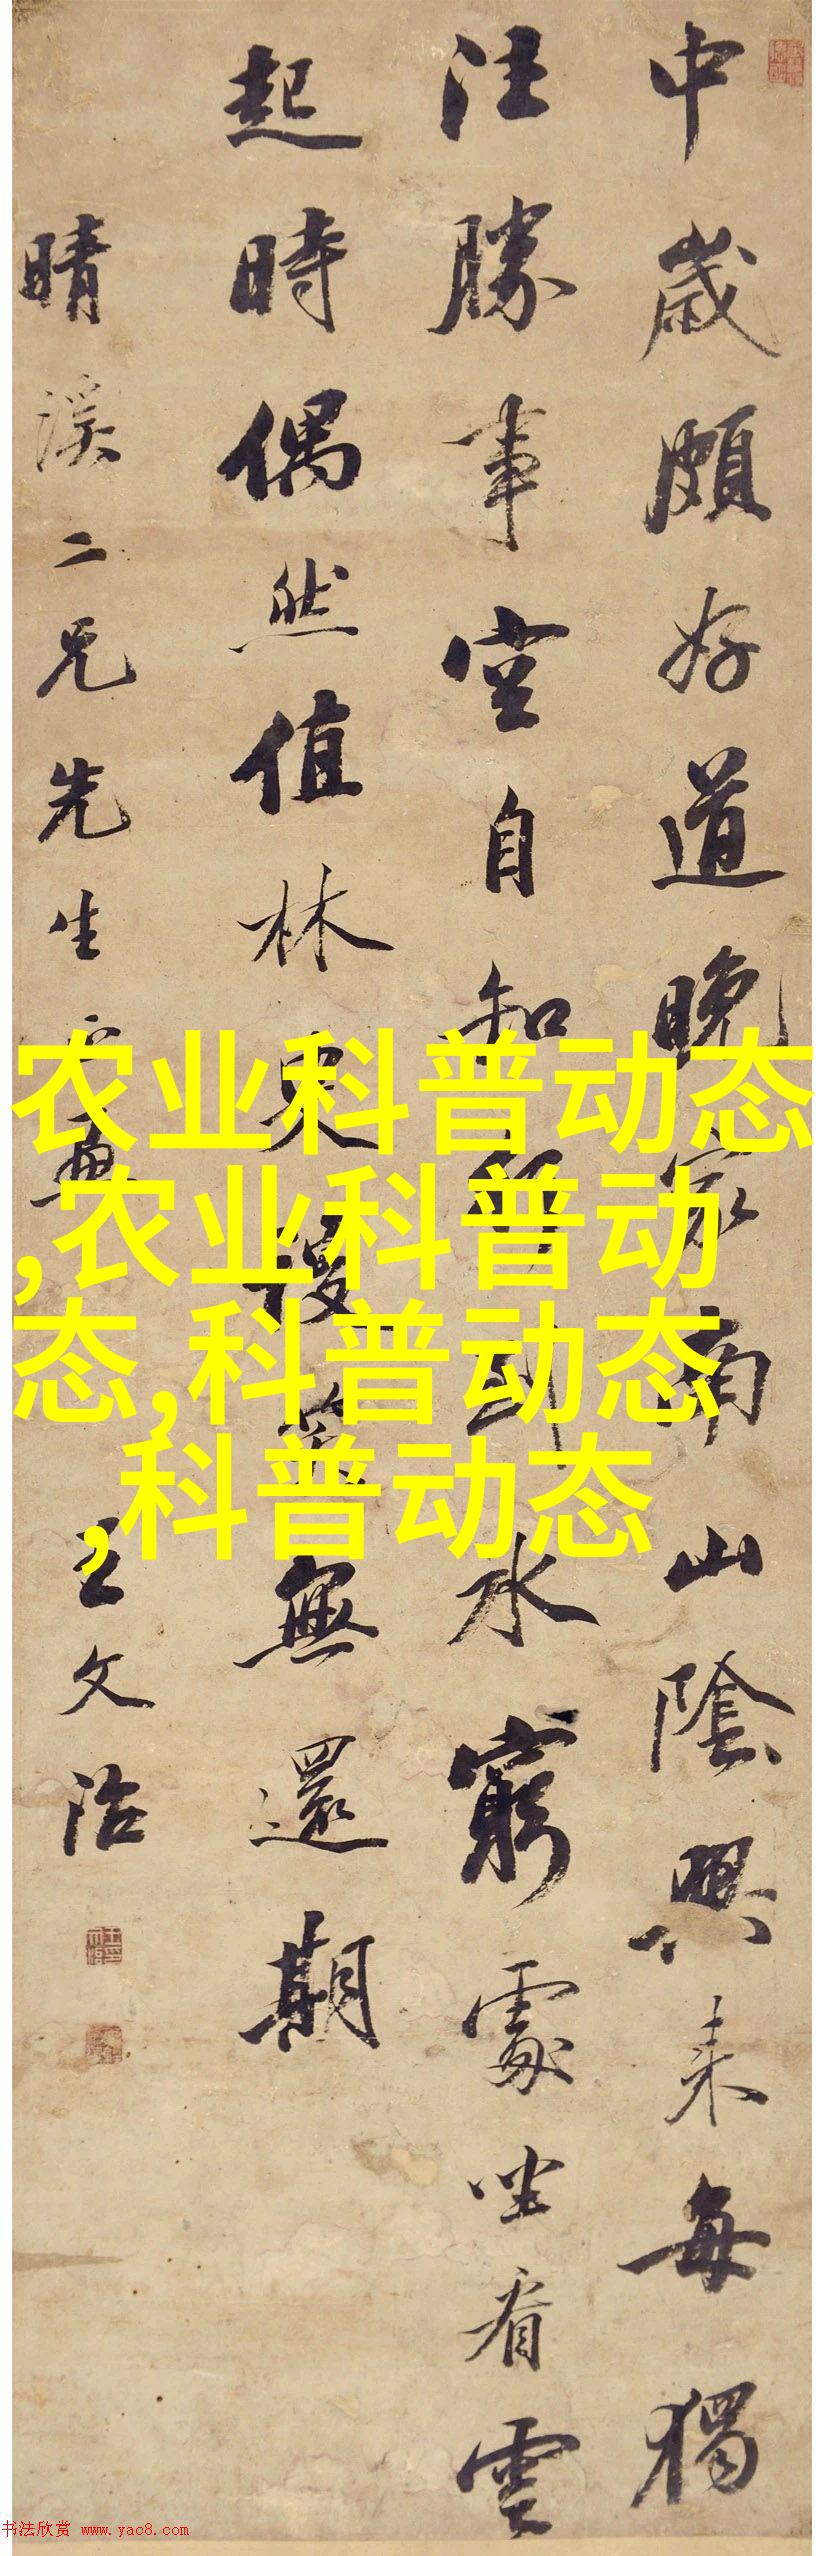 中歲頗好道晚家南山陰興來每獨
往勝事空自知行到水窮處坐看雲
起時偶然值林叟無還期
晴溪二兄先生
王文治
农业科普动态
,农业科普动
态,科普动态
,科普动态
书法欣赏 www.yac8.com